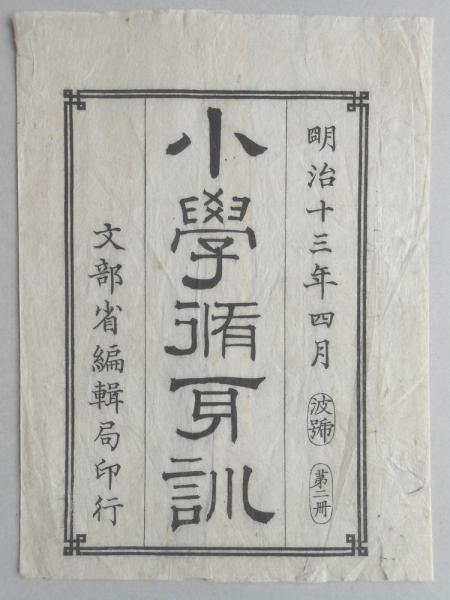 明治十三年四月 波號 第二冊
小學脩身訓
文部省編輯局印行